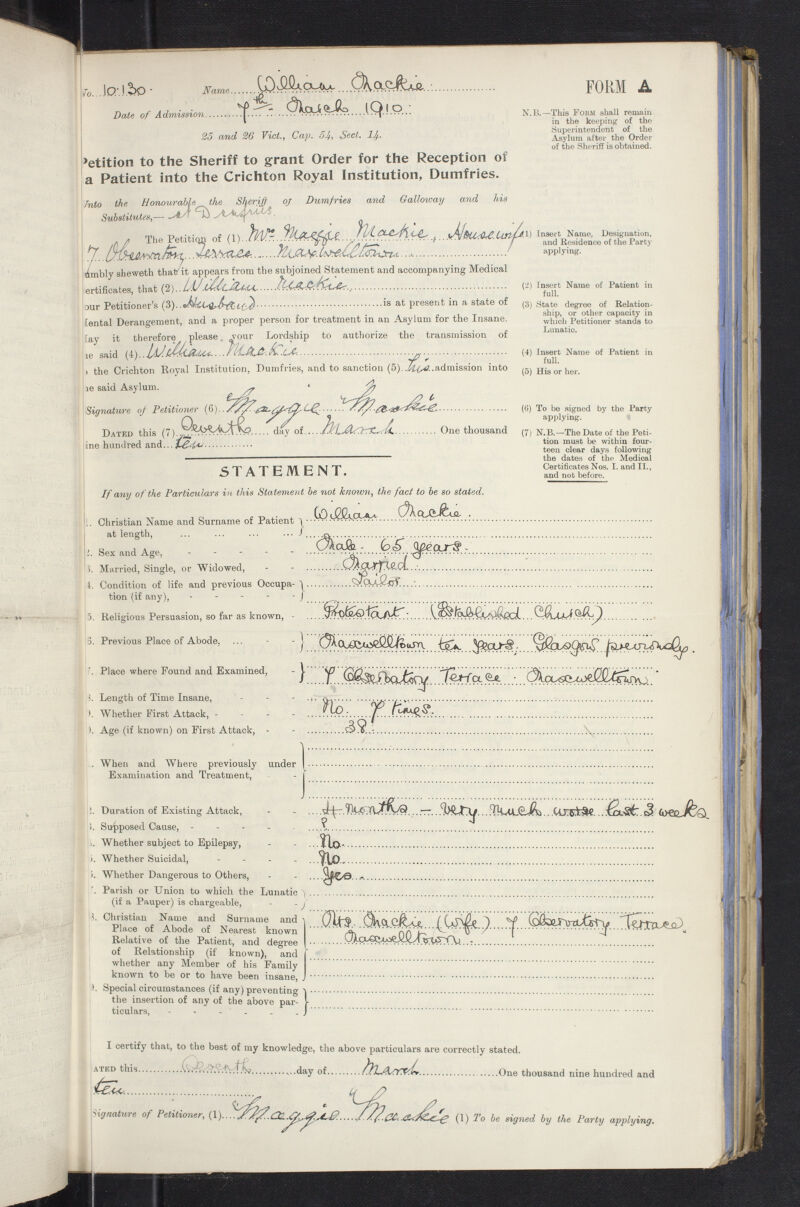 No. 10.130. Name William Mackie. FORM A
Date of Admission 7th March 1910.
25 and 26 Vict., Cap. 54, Sect. 14.
N.B.—This FORM shall remain
in the keeping of the
Superintendent of the
Asylum after the Order
of the Sheriff is obtained.
Petition to the Sheriff to grant Order for the Reception of
a Patient into the Crichton Royal Institution, Dumfries.
Into the Honourable the Sheriff of Dumfries and Galloway and his
Substitutes,— at Dumfries.
The Petition of (1) Mrs Maggie Mackie, Housewife
7 Observatory Terrace Maxwelltown
(1) Insert Name, Designation,
and Residence of the Party
applying.
umbly sheweth that it appears from the subjoined Statement and accompanying Medical
ertificates, that (2) William Mackie,
(2) Insert Name of Patient in
full.
our Petitioner's (3) Husband is at present in a state of
ental Derangement, and a proper person for treatment in an Asylum for the Insane.
(3) State degree of Relation-
ship, or other capacity in
which Petitioner stands to
Lunatic.
ay it therefore please your Lordship to authorize the transmission of
he said (4) William Mackie
(4) Insert Name of Patient in
full.
the Crichton Royal Institution, Dumfries, and to sanction (5) his admission into
(5) His or her.
he said Asylum.
Signature of Petitioner (6) Maggie Mackie
(6) To be signed by the Party
applying.
DATED this (7) Seventh day of March One thousand
ine hundred and ten
(7) N.B.—The Date of the Peti-
tion must be within four-
teen clear days following
the dates of the Medical
Certificates Nos. I. and II.,
and not before.
STATEMENT.
If any of the Particulars in this Statement be not known, the fact to be so stated.
1. Christian Name and Surname of Patient William Mackie.
at length, ... ... ... ...
2. Sex and Age, - - - - - Male. 65 years.
3. Married, Single, or Widowed, - - Married.
4. Condition of life and previous Occupa- Tailor.
tion (if any), - - - - -
5. Religious Persuasion, so far as known, - Protestant. (Established Church)
6. Previous Place of Abode, ... - - Maxwelltown ten years. Glasgow previously.
7. Place where Found and Examined, - 7 Observatory Terrace. Maxwelltown.
8. Length of Time Insane, - - -
9. Whether First Attack, - - - - No. 7 times.
0. Age (if known) on First Attack, - - 38.
. When and Where previously under
Examination and Treatment, -
2. Duration of Existing Attack, - - 4 months – very much worse last 3 weeks.
3. Supposed Cause, - - - - ?
. Whether subject to Epilepsy, - - No.
. Whether Suicidal, - - - - No.
. Whether Dangerous to Others, - - Yes.
7. Parish or Union to which the Lunatic
(if a Pauper) is chargeable, - -
8. Christian Name and Surname and Mrs. Mackie (Wife) 7 Observatory Terrace,
Place of Abode of Nearest known Maxwelltown.
Relative of the Patient, and degree
of Relationship (if known), and
whether any Member of his Family
known to be or to have been insane,
9. Special circumstances (if any) preventing
the insertion of any of the above par-
ticulars, - - - - - -
I certify that, to the best of my knowledge, the above particulars are correctly stated.
ATED this Seventh day of March One thousand nine hundred and
ten
Signature of Petitioner, (1) Maggie Mackie (1) To be signed by the Party applying.